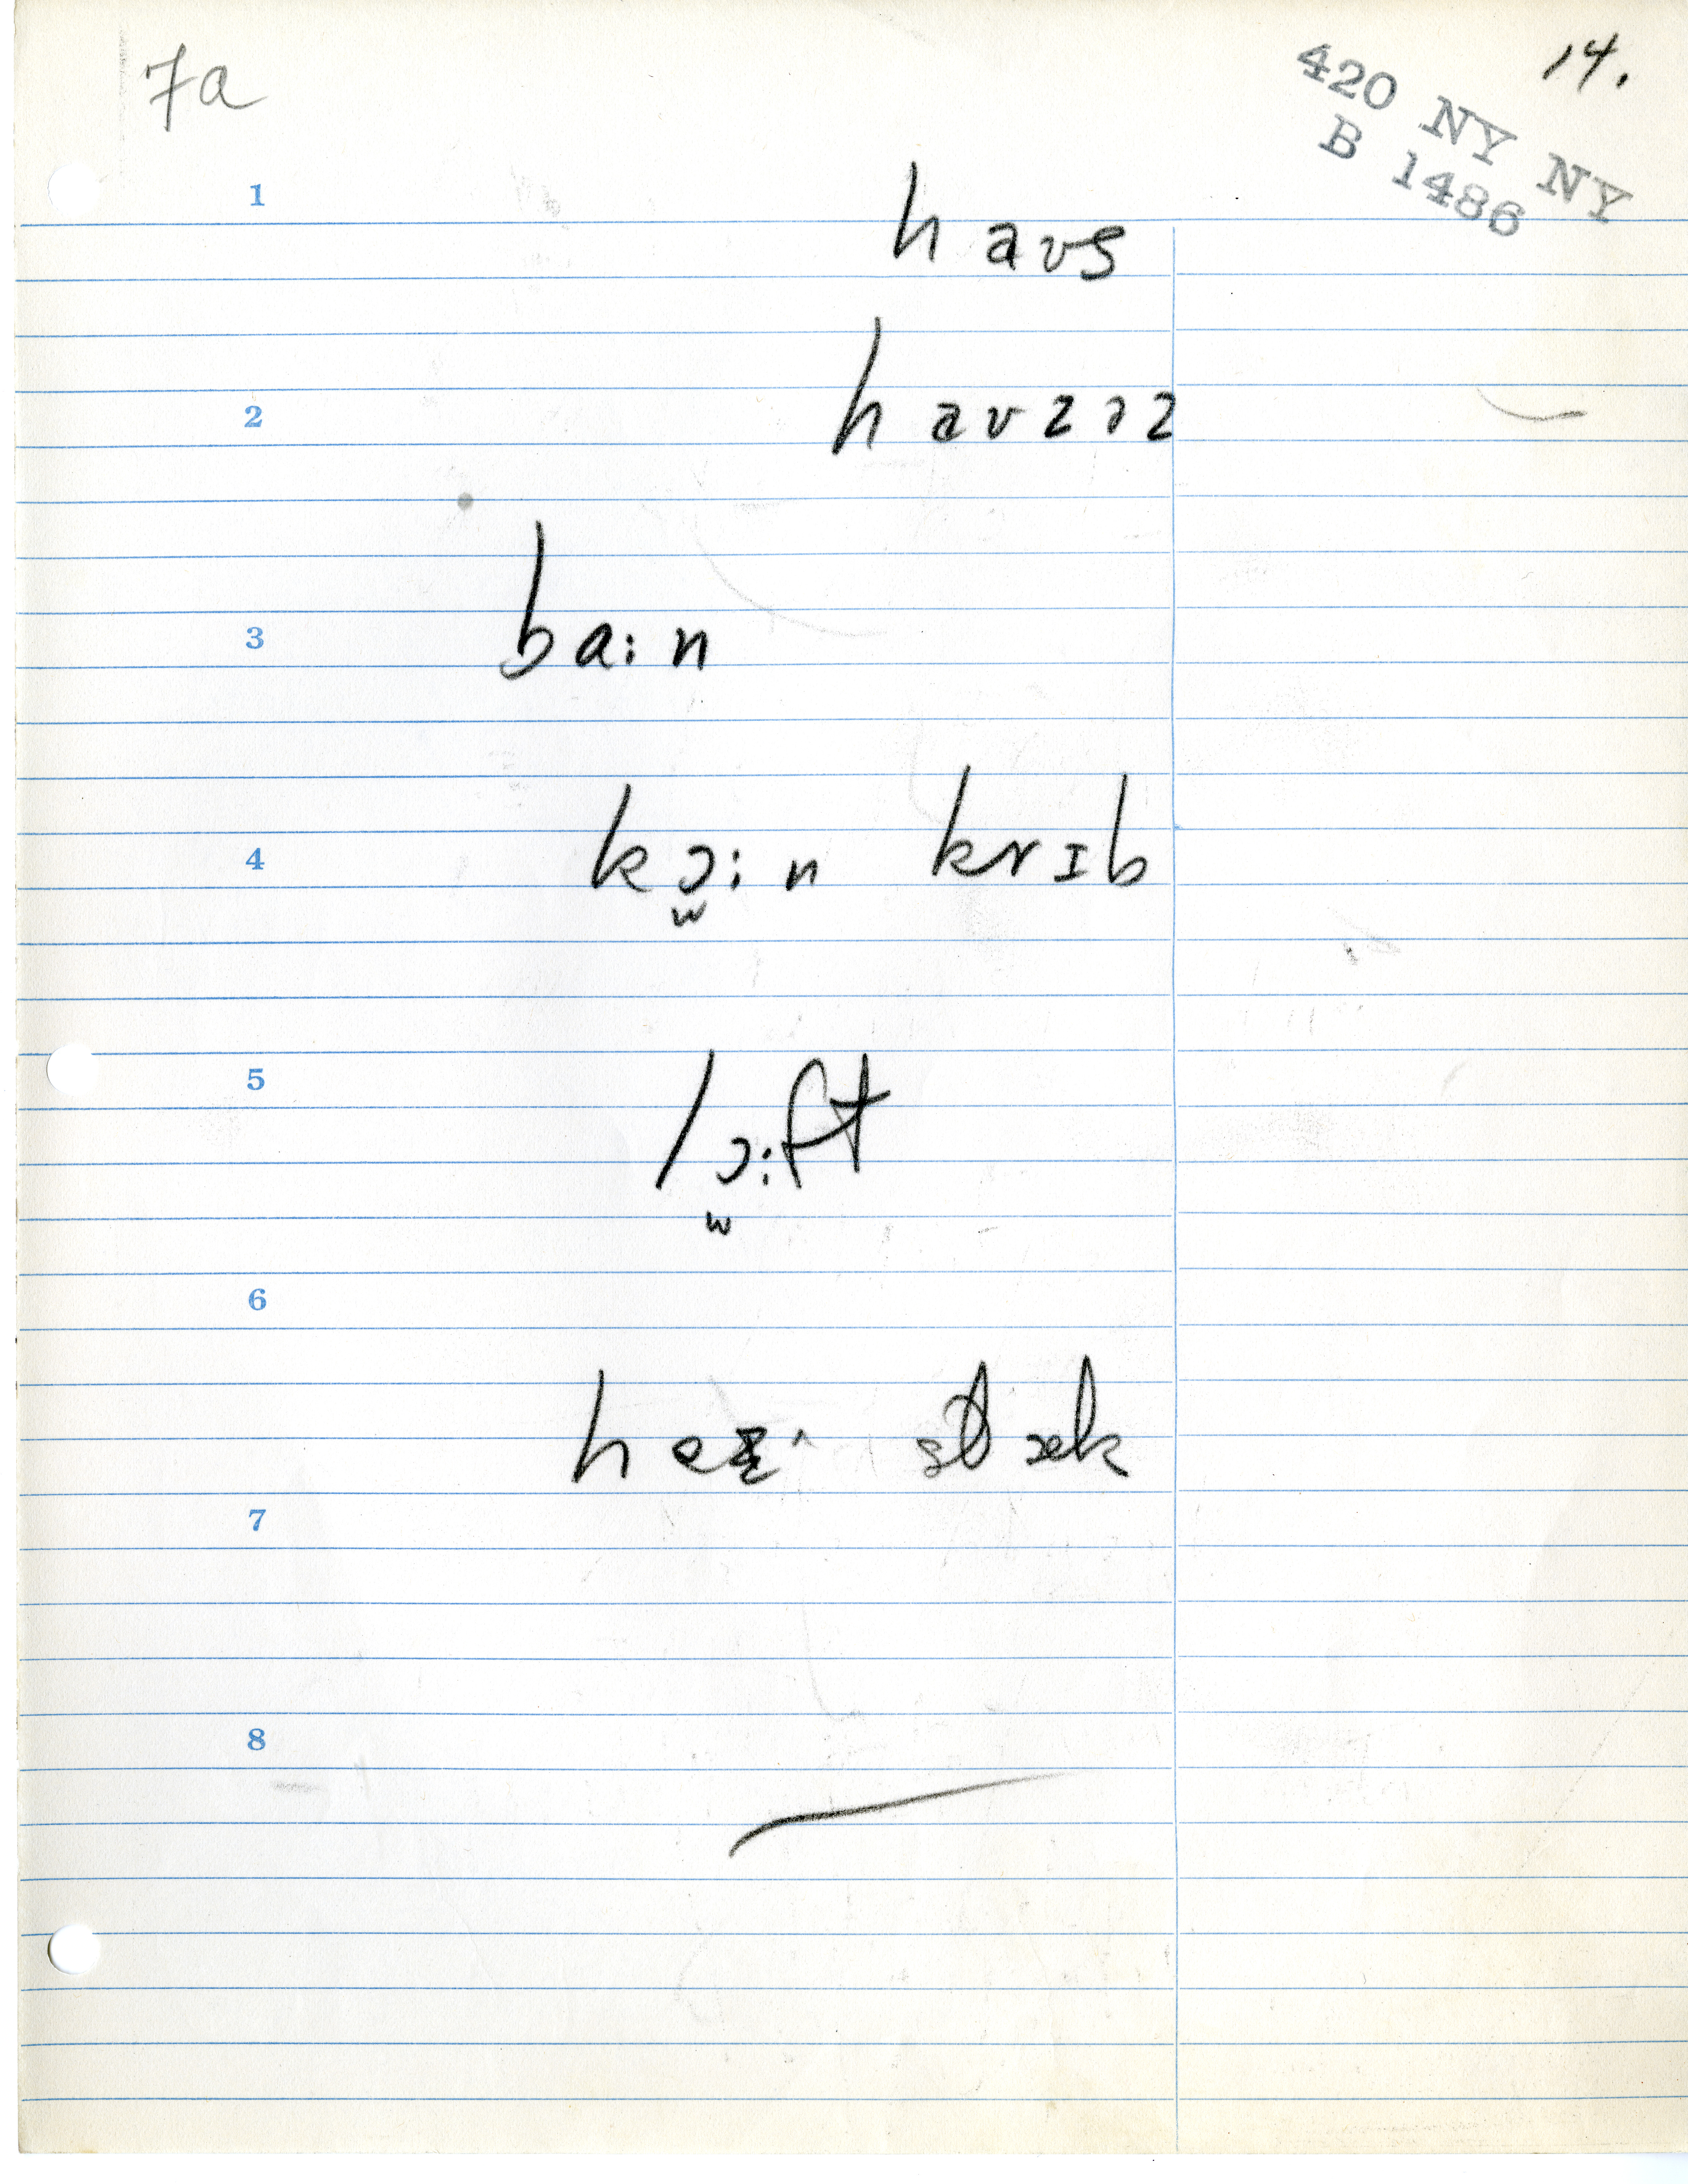 7a
14.
420 NY NY
B 1486
1
haʊs
2
haʊzəz
3
ba:n
4
kɔ̫:n krɪb
5
lɔ̫:ft
6
7
8